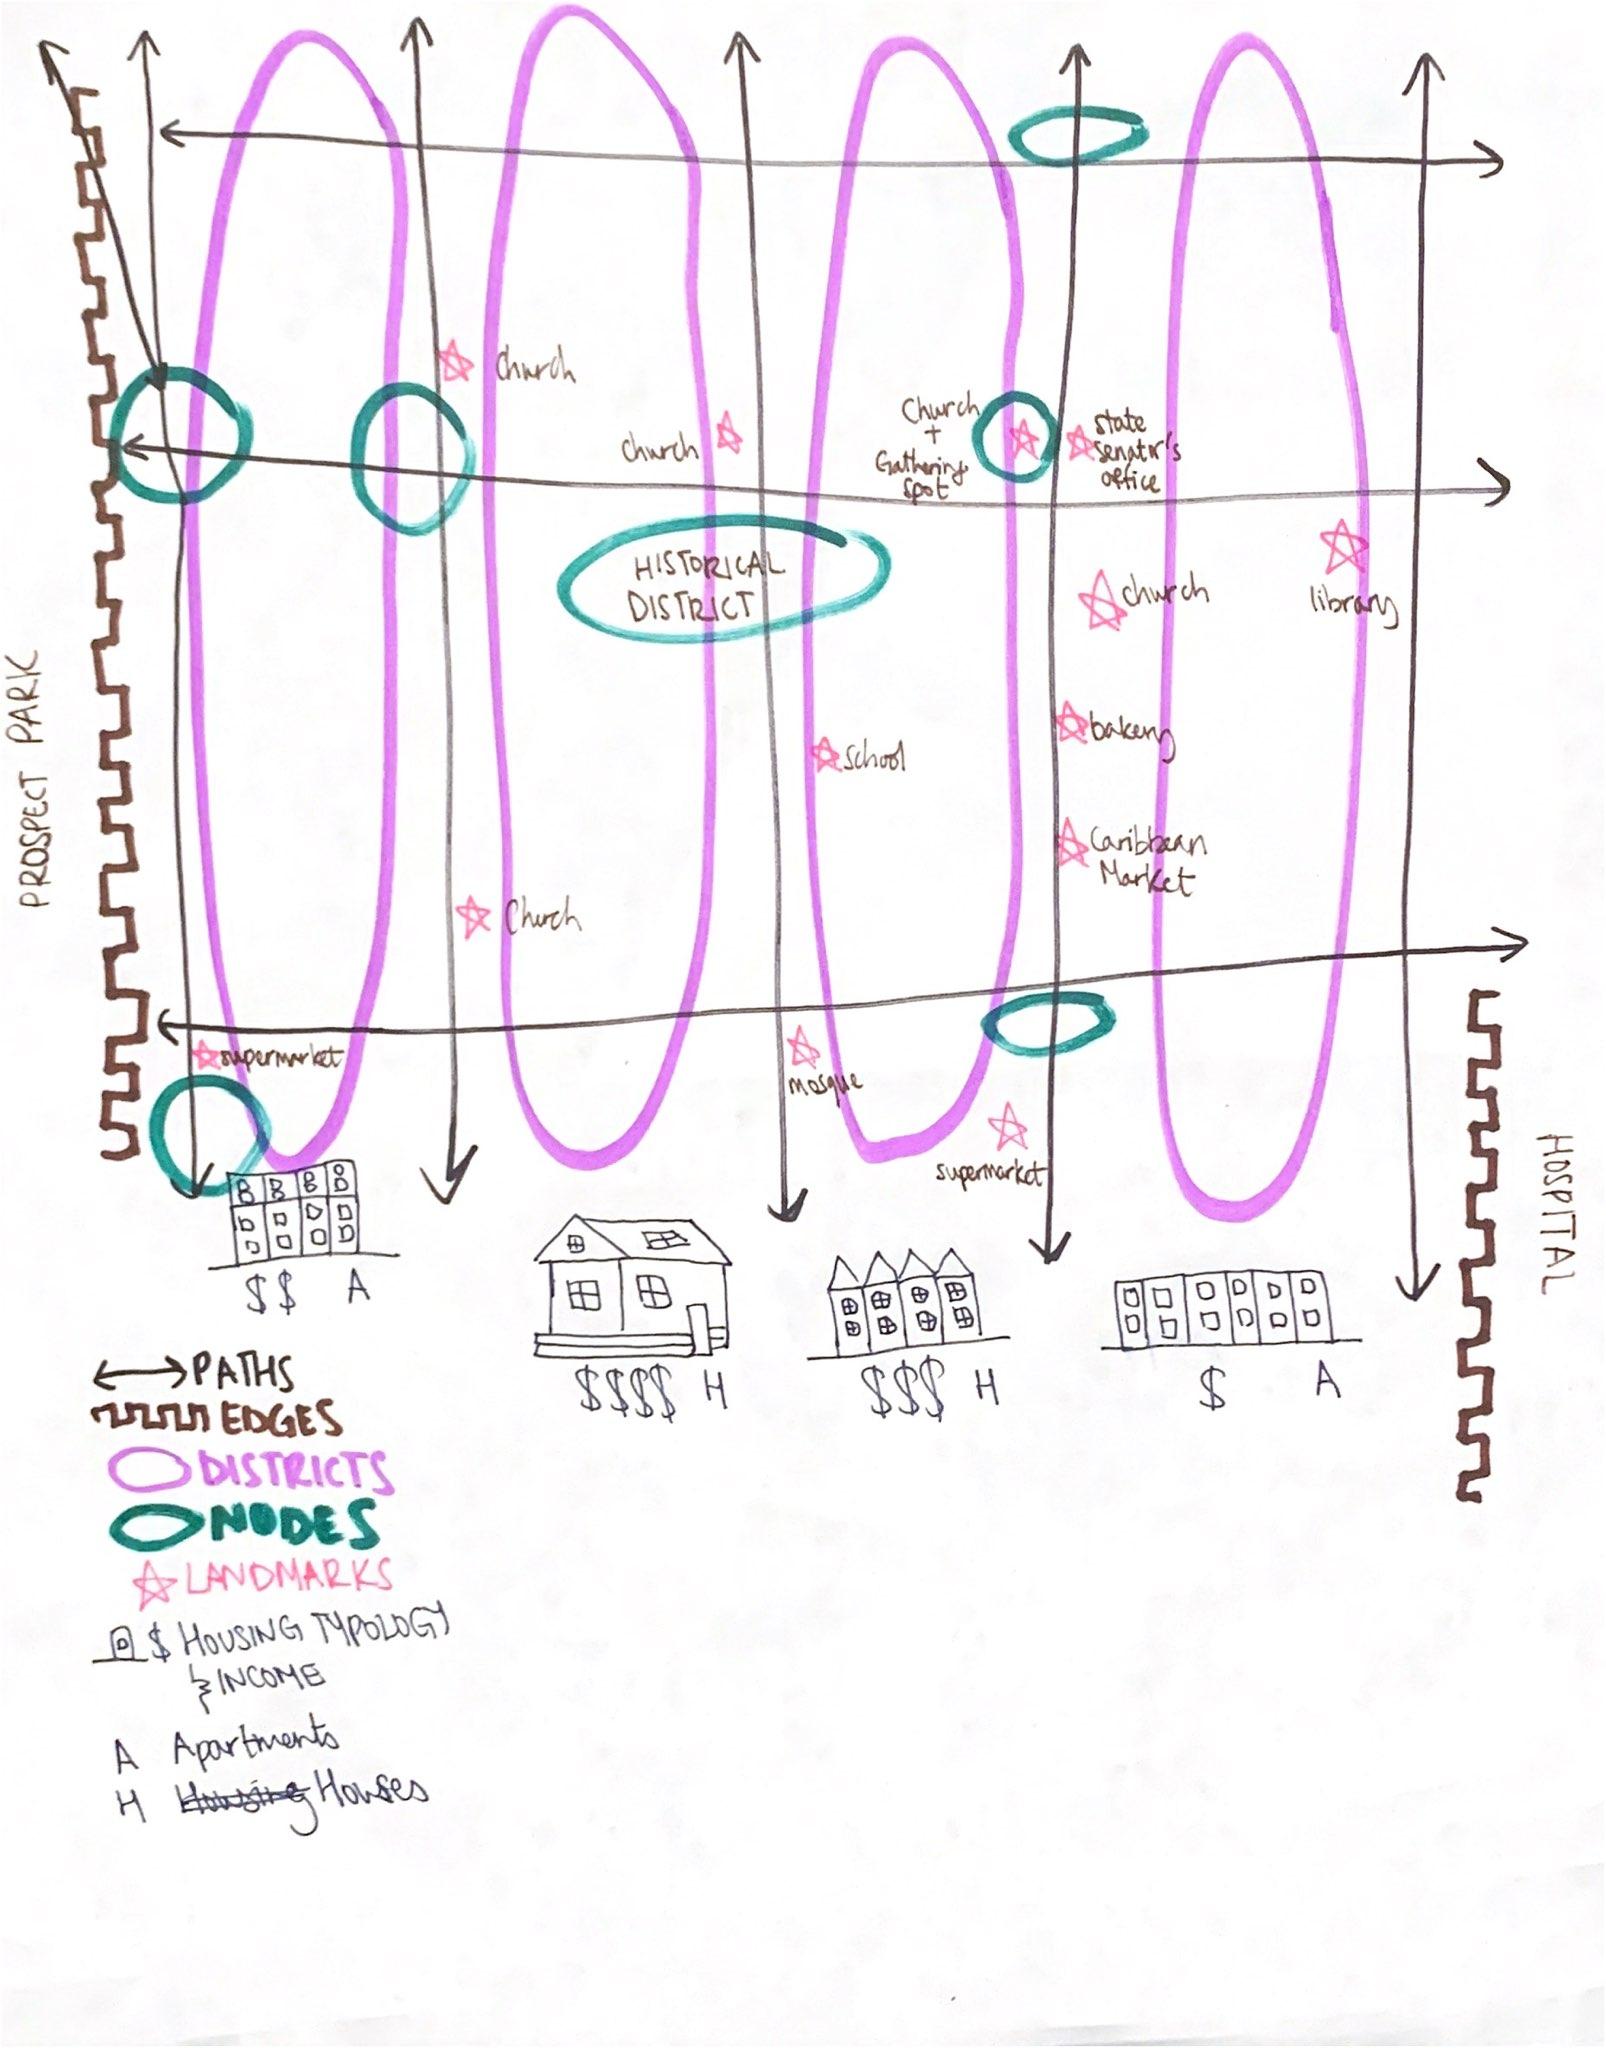 church
church
Church
+
Gathering
Spot
state
senator's
office
HISTORICAL
DISTRICT
church
library
PROSPECT PARK
bakery
school
Caribbean
Market
Church
supermarket
mosque
supermarket
HOSPITAL
$$ A
$$$$ H
$$$ H
$ A
PATHS
EDGES
DISTRICTS
NODES
LANDMARKS
$ HOUSING TYPOLOGY
& INCOME
A Apartments
H Housing Houses